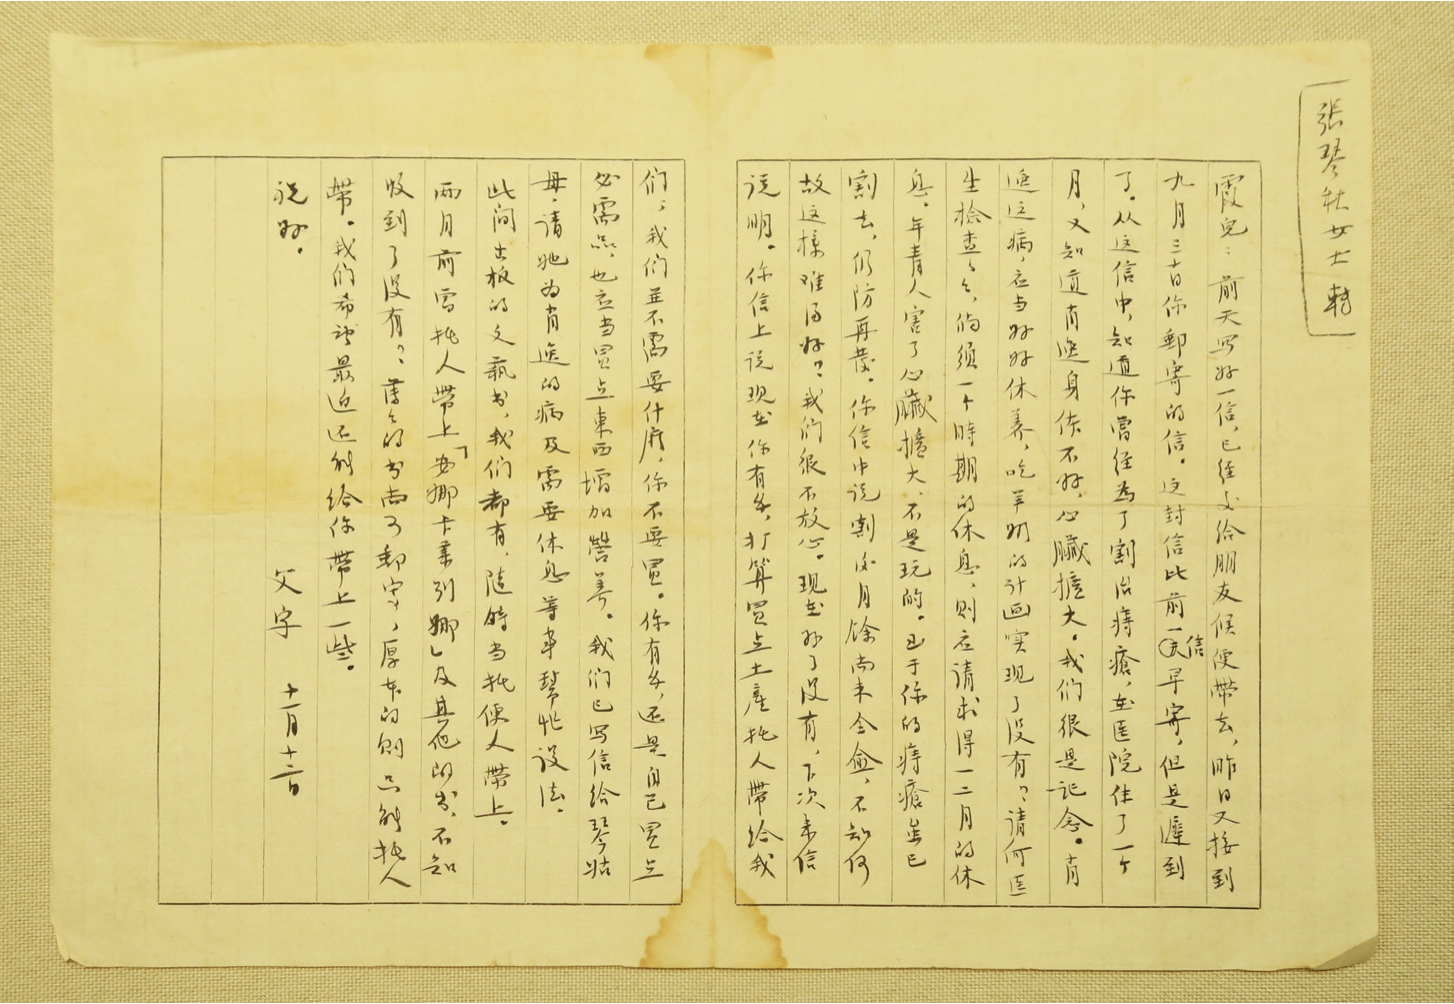 張琴秋女士轉
霞兒：前天写好一信，已经交给朋友候便帶去，昨日又接到
九月三十日你郵寄的信。这封信比前一信早寄，但是遲到
了。从这信中，知道你曾经为了割治痔瘡，在医院住了一个
月，又知道肖逸身体不好，心臟擴大。我们很是記念。肖
逸这病，应当好好休养，吃羊奶的计画实现了没有？请何医
生檢查々々，倘须一个時期的休息，则应请求得一二月的休
息。年青人害了心臟擴大，不是玩的。至于你的痔瘡虽已
割去，仍防再發。你信中说割後月餘尚未全愈，不知何
故这樣难得好？我们很不放心。现在好了没有，下次来信
说明。你信上说现在你有錢，打算買点土產托人帶给我
们，我们並不需要什麽，你不要買。你有錢，还是自己買点
必需品，也应当買点東西增加营养。我们已写信给琴姑
母，请她为肖逸的病及需要休息等事幫忙设法。
此间出板的文藝书，我们都有，随時当托便人帶上。
兩月前曾托人帶上「安娜卡列娜」及其他的书，不知
收到了没有？薄々的书尚可郵寄，厚本的则只能托人
帶。我们希望最近还能给你帶上一些。
祝好。
父字　十一月十二日